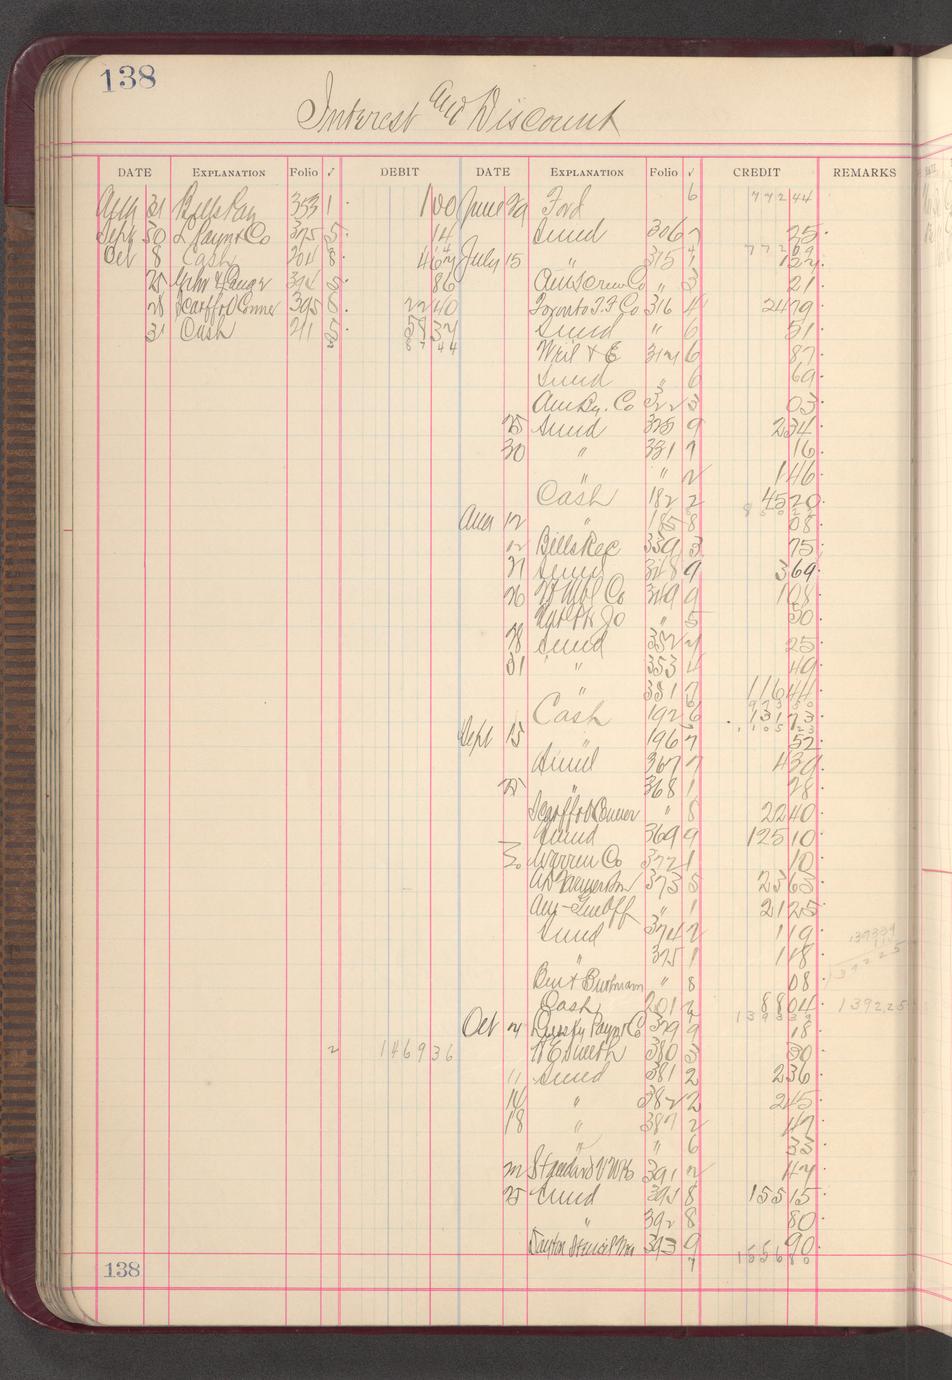 138
Interest and Discount
DATE EXPLANATION Folio √ DEBIT DATE EXPLANATION Folio √ CREDIT REMARKS
Aug 31 Bills Pay 353 1 1 00 June 29 Ford 6 772 44
Sept 30 L Paynt Co 375 5 14 Sund 306 7 25
Oct 8 Cash 201 8 4 67 July 15 " 315 1 1 27
25 86 Am Screw Co " 3 21
28 Scarff & O'Connor 395 6 22 40 Toronto T.F Co 316 4 24 79
31 Cash 211 5 58 37 Sund " 6 51
2 87 44 Weil & E 317 6 87
Sund " 6 69
Am Ry. Co 322 3 03
25 Sund 325 9 2 34
30 " 331 7 16
" " 2 1 46
Cash 182 2 45 20
Aug 12 " 185 8 08
12 Bills Rec 339 3 75
21 Sund 348 9 3 69
26 Co 349 9 1 08
" 5 50
28 Sund 352 4 25
31 " 353 4 49
" 381 7 116 44
Cash 192 6 131 73
Sept 15 " 196 7 52
Sund 367 7 4 39
25 " 368 1 28
Scarff & O'Connor " 8 22 40
Sund 369 9 125 10
30 Warren Co 372 1 10
373 5 23 63
" 1 21 25
Sund 374 2 1 19 1393 39
" 375 1 1 18 1392 25
Ben & Buthmann " 8 08
Cash 201 2 88 04 1392.25
1393 39
Oct 4 Paynt Co 379 9 18
2 1469 36 H E Smith 380 3 30
11 Sund 381 2 2 36
14 " 382 2 2 45
18 " 387 2 47
" " 6 33
22 Standard 391 2 47
25 Sund 391 8 155 15
" 392 8 80
Dayton 393 9 90
7 1556 80
138